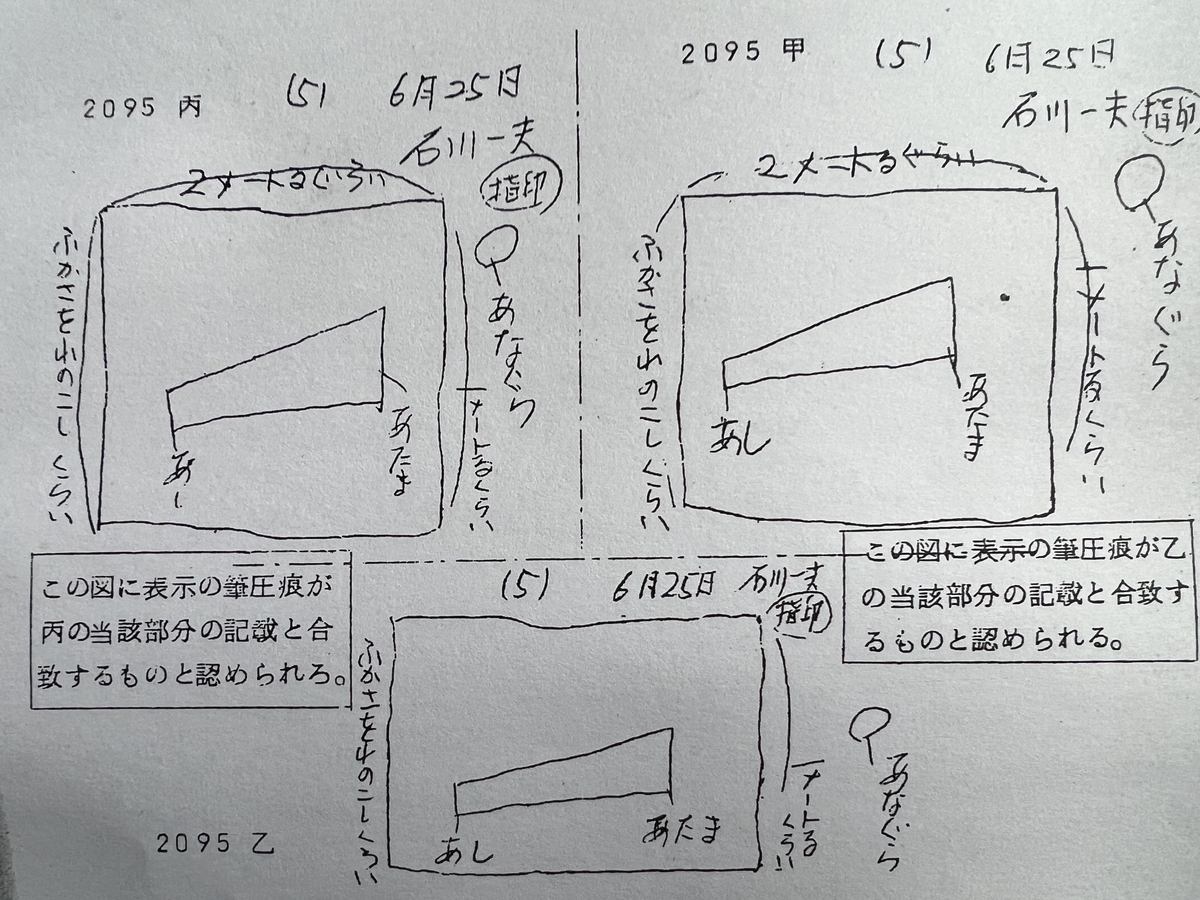 2095 丙
(5) 6月25日
石川一夫
指印
2メートるぐらい
ふかさをれのこしくらい
あなぐら
1メートるくらい
あたま
あし
2095 甲
(5) 6月25日
石川一夫 指印
2メートるぐらい
ふかさをれのこしくらい
あなぐら
1メートるくらい
あたま
あし
この図に表示の筆圧痕が
丙の当該部分の記載と合
致するものと認められる。
この図に表示の筆圧痕が乙
の当該部分の記載と合致す
るものと認められる。
(5) 6月25日 石川一夫
指印
ふかさをれのこしくらい
あなぐら
1メートる
くらい
あたま
あし
2095 乙